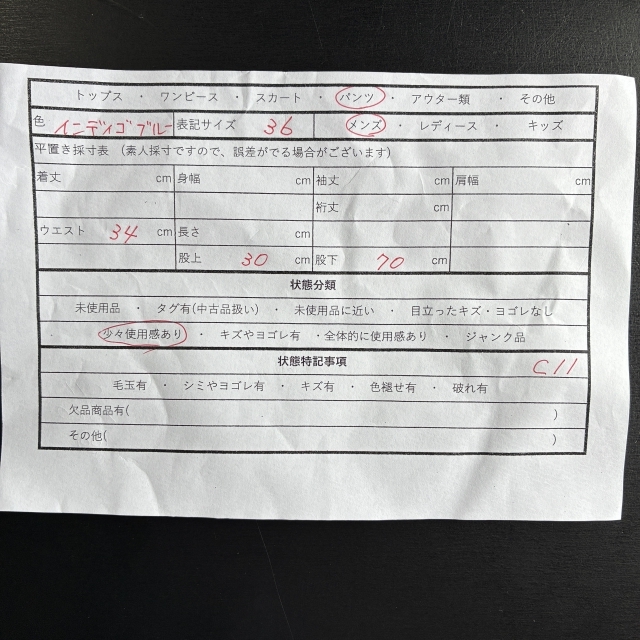 トップス ・ ワンピース ・ スカート ・ パンツ ・ アウター類 ・ その他
色 インディゴブルー 表記サイズ 36 メンズ ・ レディース ・ キッズ
平置き採寸表 (素人採寸ですので、誤差がでる場合がございます)
着丈 cm 身幅 cm 袖丈 cm 肩幅 cm
裄丈 cm
ウエスト 34 cm 長さ cm
股上 30 cm 股下 70 cm
状態分類
未使用品 ・ タグ有(中古品扱い) ・ 未使用品に近い ・ 目立ったキズ・ヨゴレなし
・ 少々使用感あり ・ キズやヨゴレ有 ・全体的に使用感あり ・ ジャンク品
状態特記事項 C11
毛玉有 ・ シミやヨゴレ有 ・ キズ有 ・ 色褪せ有 ・ 破れ有
欠品商品有( )
その他( )